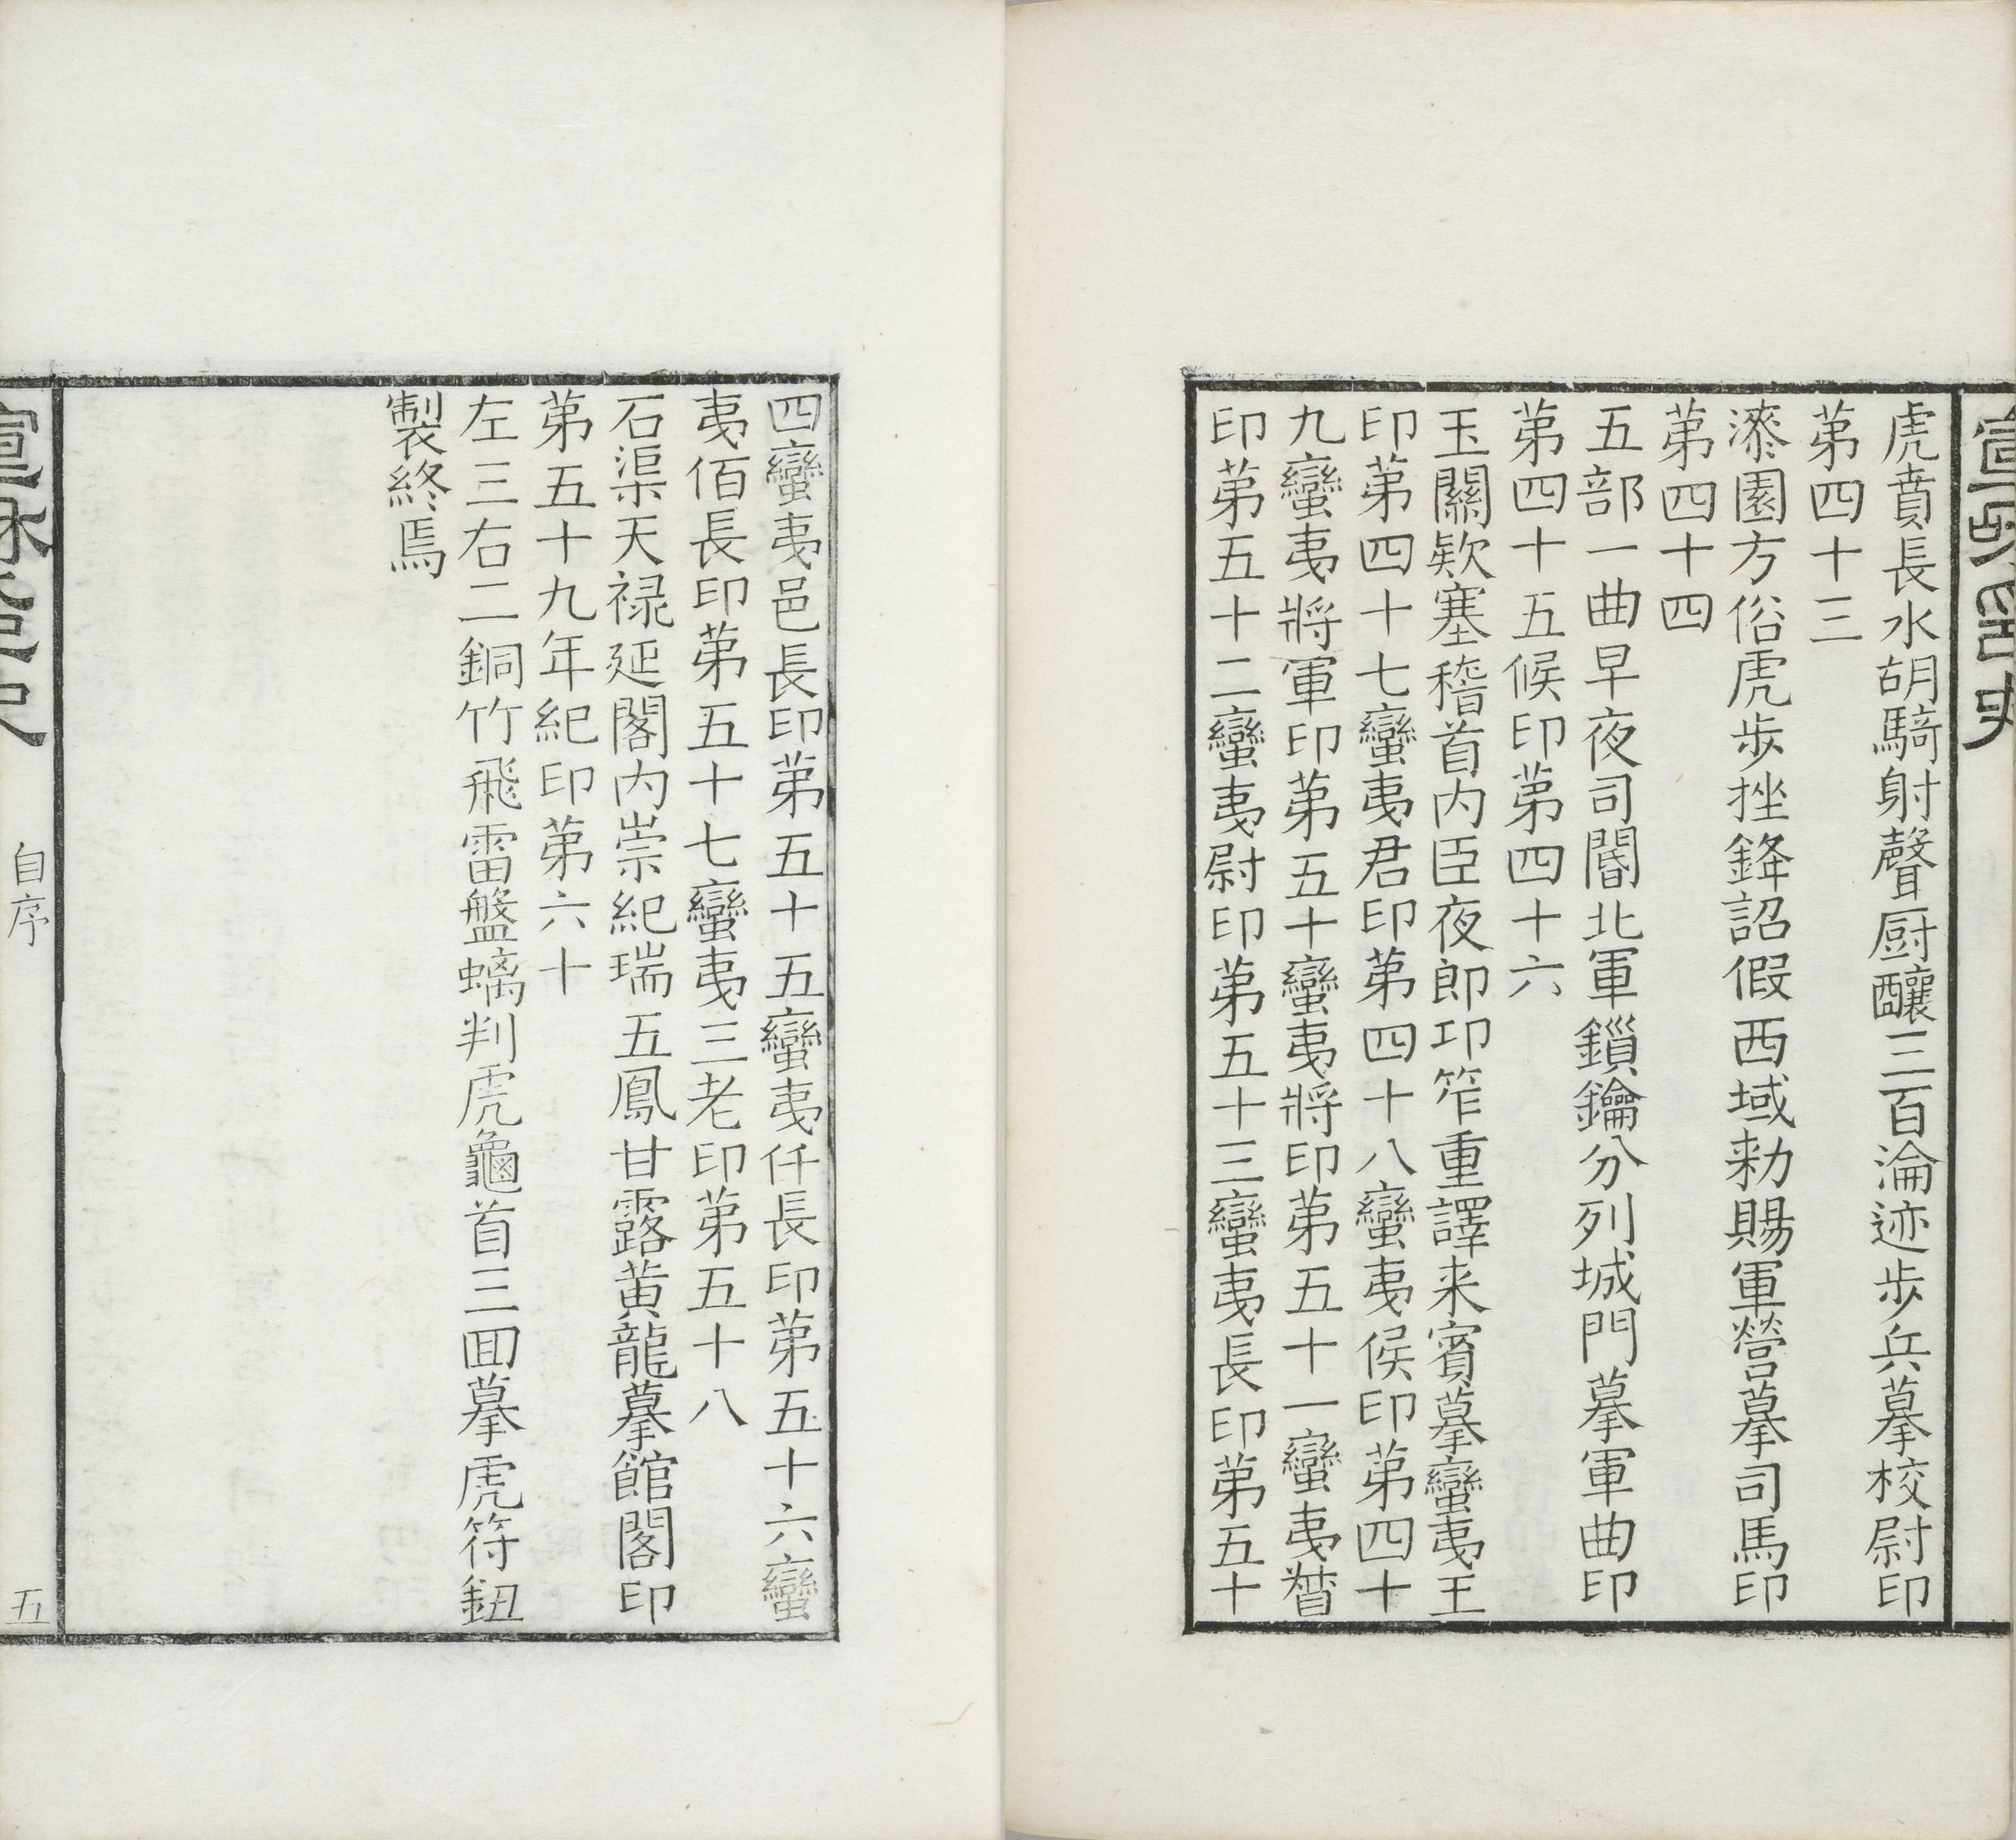 虎賁長水胡騎射聲厨釀三百淪迹步兵摹校尉印
第四十三
漆園方俗虎步挫鋒詔假西域勑賜軍營摹司馬印
第四十四
五部一曲早夜司閽北軍鎖鑰分列城門摹軍曲印
第四十五候印第四十六
玉關欵塞稽首内臣夜郎邛笮重譯来賓摹蠻夷王
印第四十七蠻夷君印第四十八蠻夷侯印第四十
九蠻夷將軍印第五十蠻夷將印第五十一蠻夷
印第五十二蠻夷尉印第五十三蠻夷長印第五十
四蠻夷邑長印第五十五蠻夷仟長印第五十六蠻
夷佰長印第五十七蠻夷三老印第五十八
石渠天禄延閣内崇紀瑞五鳳甘露黄龍摹館閣印
第五十九年紀印第六十
左三右二銅竹飛雷盤螭判虎龜首三囬摹虎符鈕
製終焉
自序
五